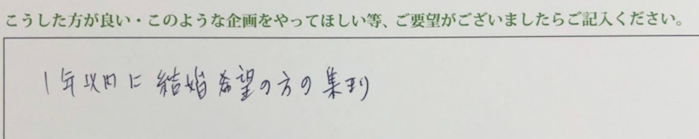 こうした方が良い・このような企画をやってほしい等、ご要望がございましたらご記入ください。
1年以内に結婚希望の方の集まり